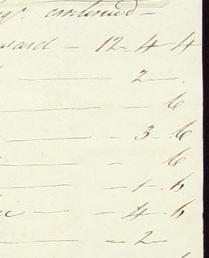 continued -
ward - 12 - 4 4
- 2 -
- 6
- 3 - 6
- 6
- 1 - 6
- 4 - 6
- 2 -